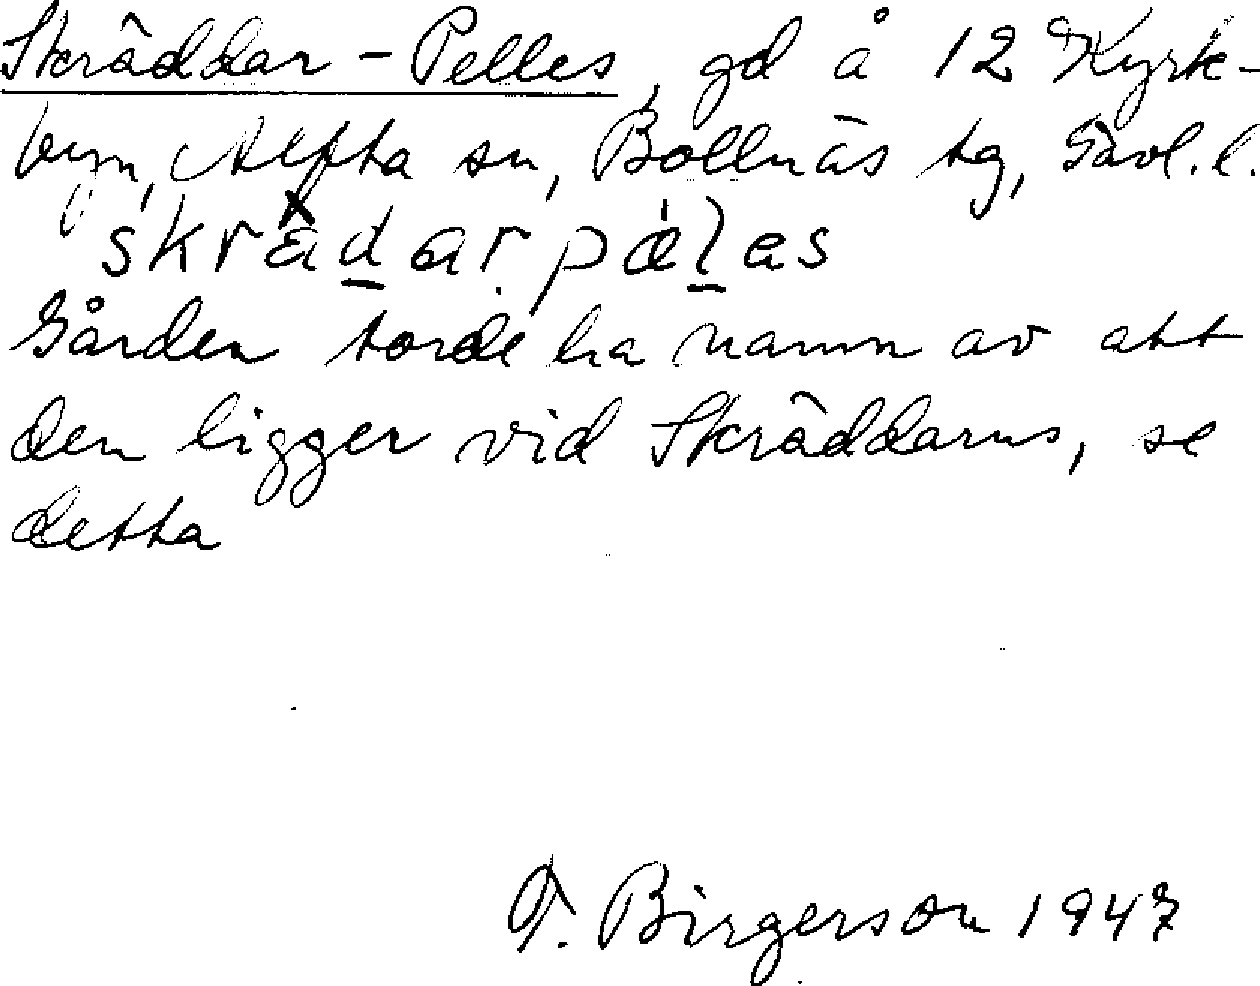 Skräddar-Pelles, gd å 12 Kyrk-
byn, Alfta sn, Bollnäs tg, Gävl. l.
skrädar pælas
Gården torde ha namn av att
den ligger vid Skräddarns, se
detta
T. Birgerson 1947